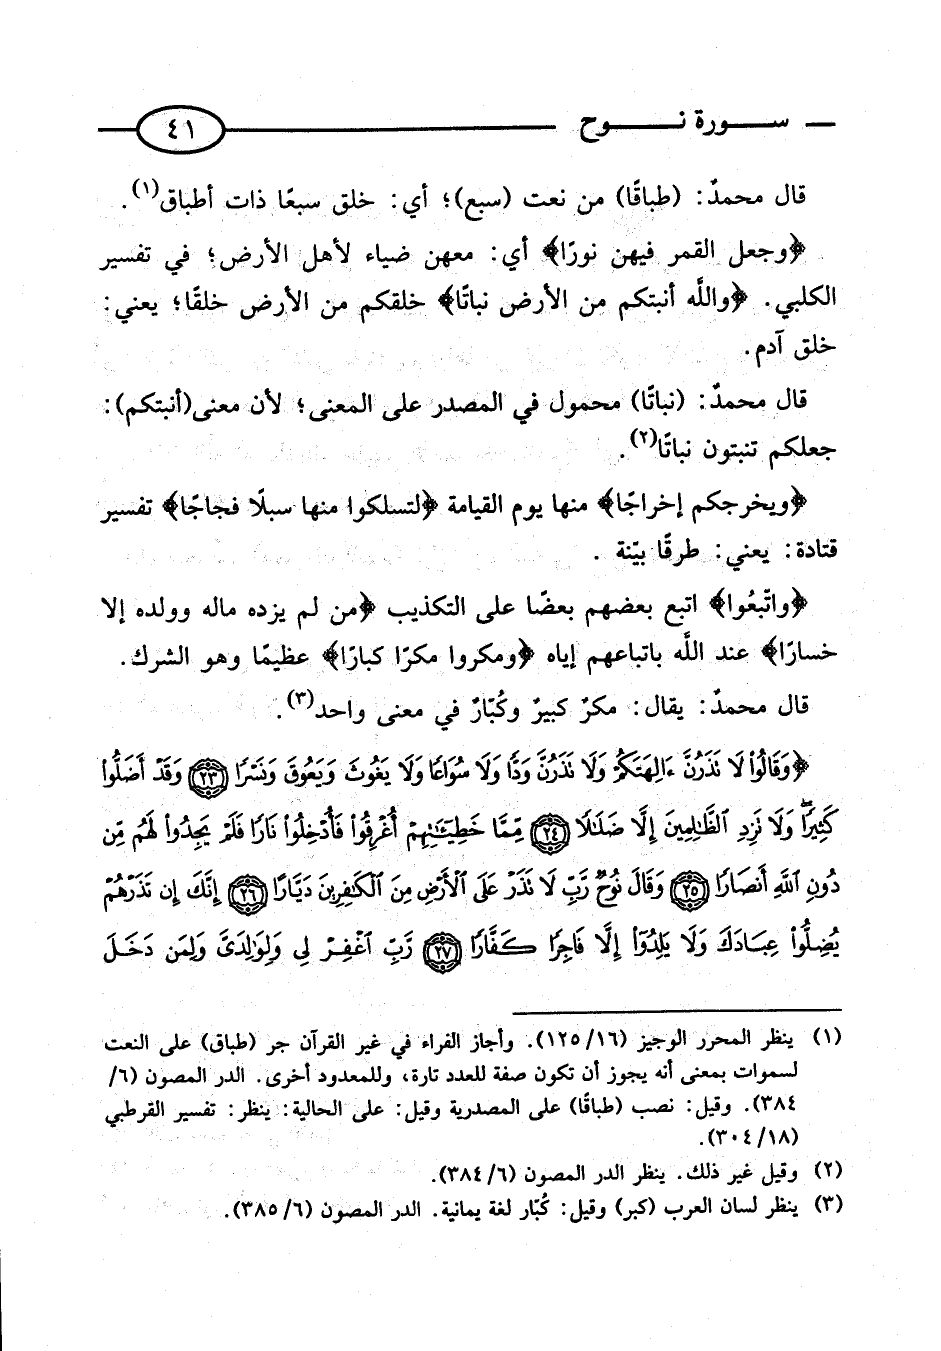 سورة نوح ٤١
قال محمدٌ: (طباقًا) من نعت (سبع)؛ أي: خلق سبعًا ذات أطباق(١).
﴿وجعل القمر فيهن نورًا﴾ أي: معهن ضياء لأهل الأرض؛ في تفسير
الكلبي. ﴿واللَّه أنبتكم من الأرض نباتًا﴾ خلقكم من الأرض خلقًا؛ يعني:
خلق آدم.
قال محمدٌ: (نباتًا) محمول في المصدر على المعنى؛ لأن معنى(أنبتكم):
جعلكم تنبتون نباتًا(٢).
﴿ويخرجكم إخراجًا﴾ منها يوم القيامة ﴿لتسلكوا منها سبلًا فجاجًا﴾ تفسير
قتادة: يعني: طرقًا بيّنة .
﴿واتّبعُوا﴾ اتبع بعضهم بعضًا على التكذيب ﴿من لم يزده ماله وولده إلا
خسارًا﴾ عند اللَّه باتباعهم إياه ﴿ومكروا مكرًا كبارًا﴾ عظيمًا وهو الشرك.
قال محمدٌ: يقال: مكرٌ كبيرٌ وكُبّارٌ في معنى واحد(٣).
﴿وَقَالُواْ لَا نَذَرُنَّ ءَالِهَتَكُمْ وَلَا نَذَرُنَّ وَدًّا وَلَا سُوَاعًا وَلَا يَغُوثَ وَيَعُوقَ وَنَسْرًا ٢٣ وَقَدْ أَضَلُّواْ
كَثِيرًاۖ وَلَا نَزِدِ ٱلظَّٰلِمِينَ إِلَّا ضَلَٰلًا ٢٤ مِّمَّا خَطِيٓـَٰٔتِهِمْ أُغْرِقُواْ فَأُدْخِلُواْ نَارًا فَلَمْ يَجِدُواْ لَهُم مِّن
دُونِ ٱللَّهِ أَنصَارًا ٢٥ وَقَالَ نُوحٌ رَّبِّ لَا نَذَرْ عَلَى ٱلْأَرْضِ مِنَ ٱلْكَٰفِرِينَ دَيَّارًا ٢٦ إِنَّكَ إِن تَذَرْهُمْ
يُضِلُّواْ عِبَادَكَ وَلَا يَلِدُوٓاْ إِلَّا فَاجِرًا كَفَّارًا ٢٧ رَّبِّ ٱغْفِرْ لِي وَلِوَٰلِدَيَّ وَلِمَن دَخَلَ
(١) ينظر المحرر الوجيز (١٢٥/١٦). وأجاز الفراء في غير القرآن جر (طباق) على النعت
لسموات بمعنى أنه يجوز أن تكون صفة للعدد تارة، وللمعدود أخرى. الدر المصون (٦/
٣٨٤). وقيل: نصب (طباقًا) على المصدرية وقيل: على الحالية: ينظر: تفسير القرطبي
(٣٠٤/١٨).
(٢) وقيل غير ذلك. ينظر الدر المصون (٣٨٤/٦).
(٣) ينظر لسان العرب (كبر) وقيل: كُبّار لغة يمانية. الدر المصون (٣٨٥/٦).